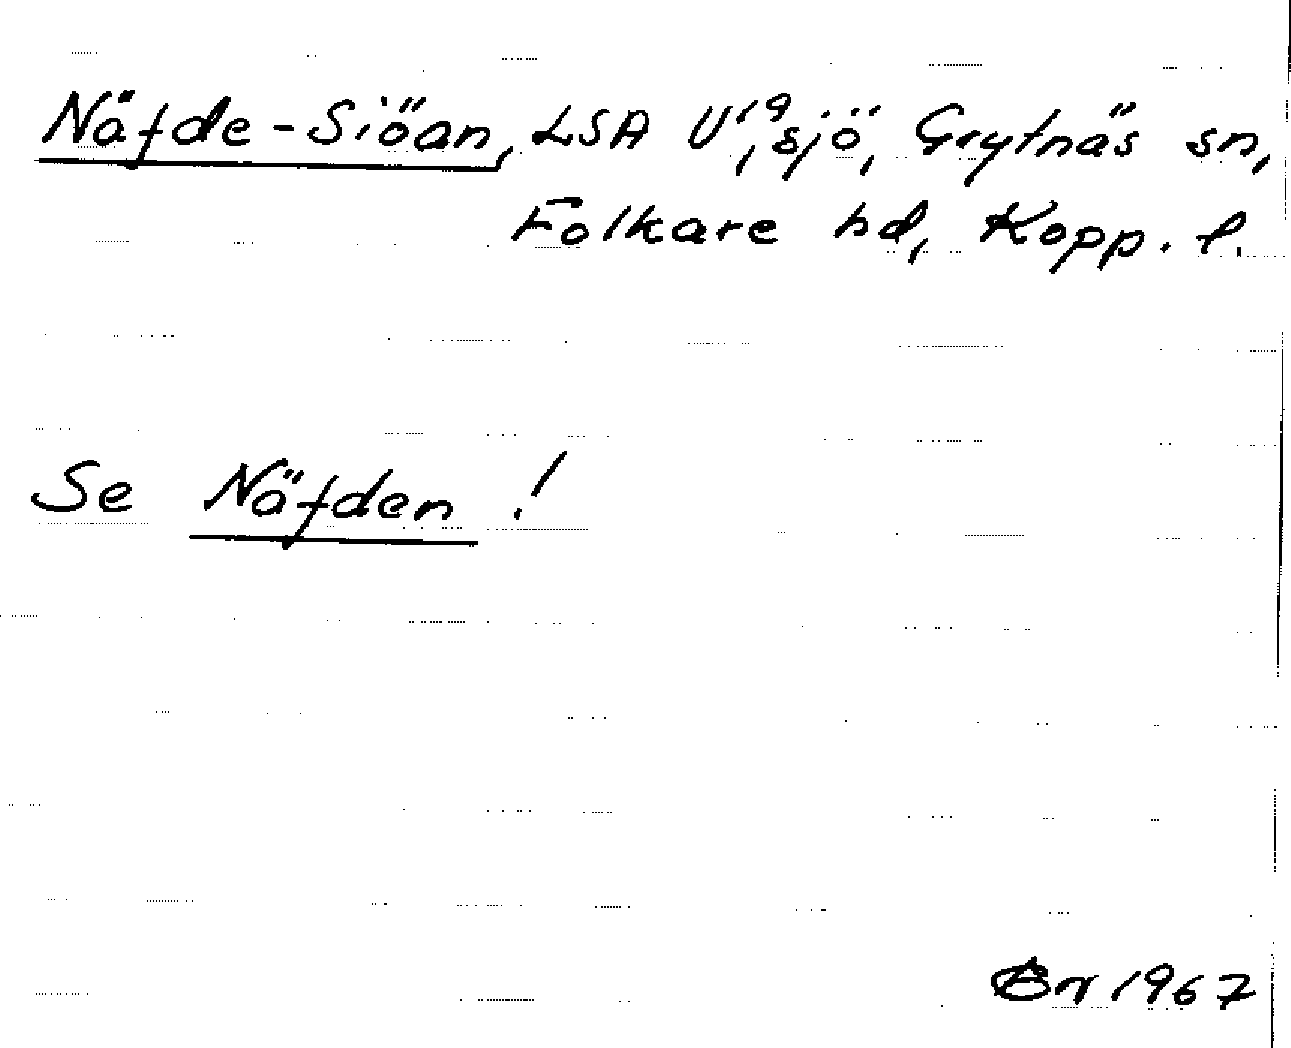 Näfde-Siöan, LSA U19, sjö, Grytnäs sn,
Folkare hd, Kopp. l.
Se Näfden!
1967